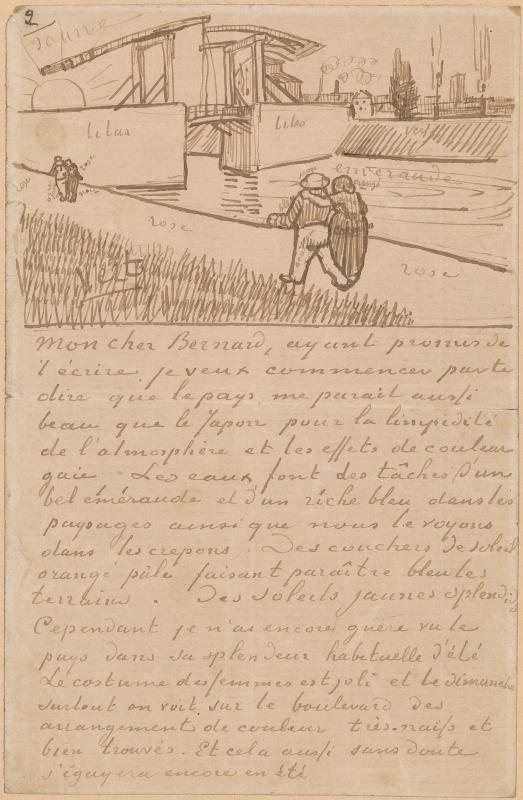 2
Jaune
lilas
lilas
vert
emeraude
orangé
rose
rose
rose
vert
Mon cher Bernard, ayant promis de
t'écrire je veux commencer par te
dire que le pays me parait aussi
beau que le Japon pour la limpidité
de l'atmosphère et les effets de couleur
gaie. Les eaux font des tâches d'un
bel eméraude et d'un riche bleu dans les
paysages ainsi que nous le voyons
dans les crepons. Des couchers de soleil
orangé pâle faisant paraître bleu les
terrains. Des soleils jaunes splendides
Cependant je n'ai encore guère vu le
pays dans sa splendeur habituelle d'été
Le costume des femmes est joli et le dimanche
surtout on voit sur le boulevard des
arrangement de couleur très naïfs et
bien trouvés. Et cela aussi sans doute
s'égayera encore en été